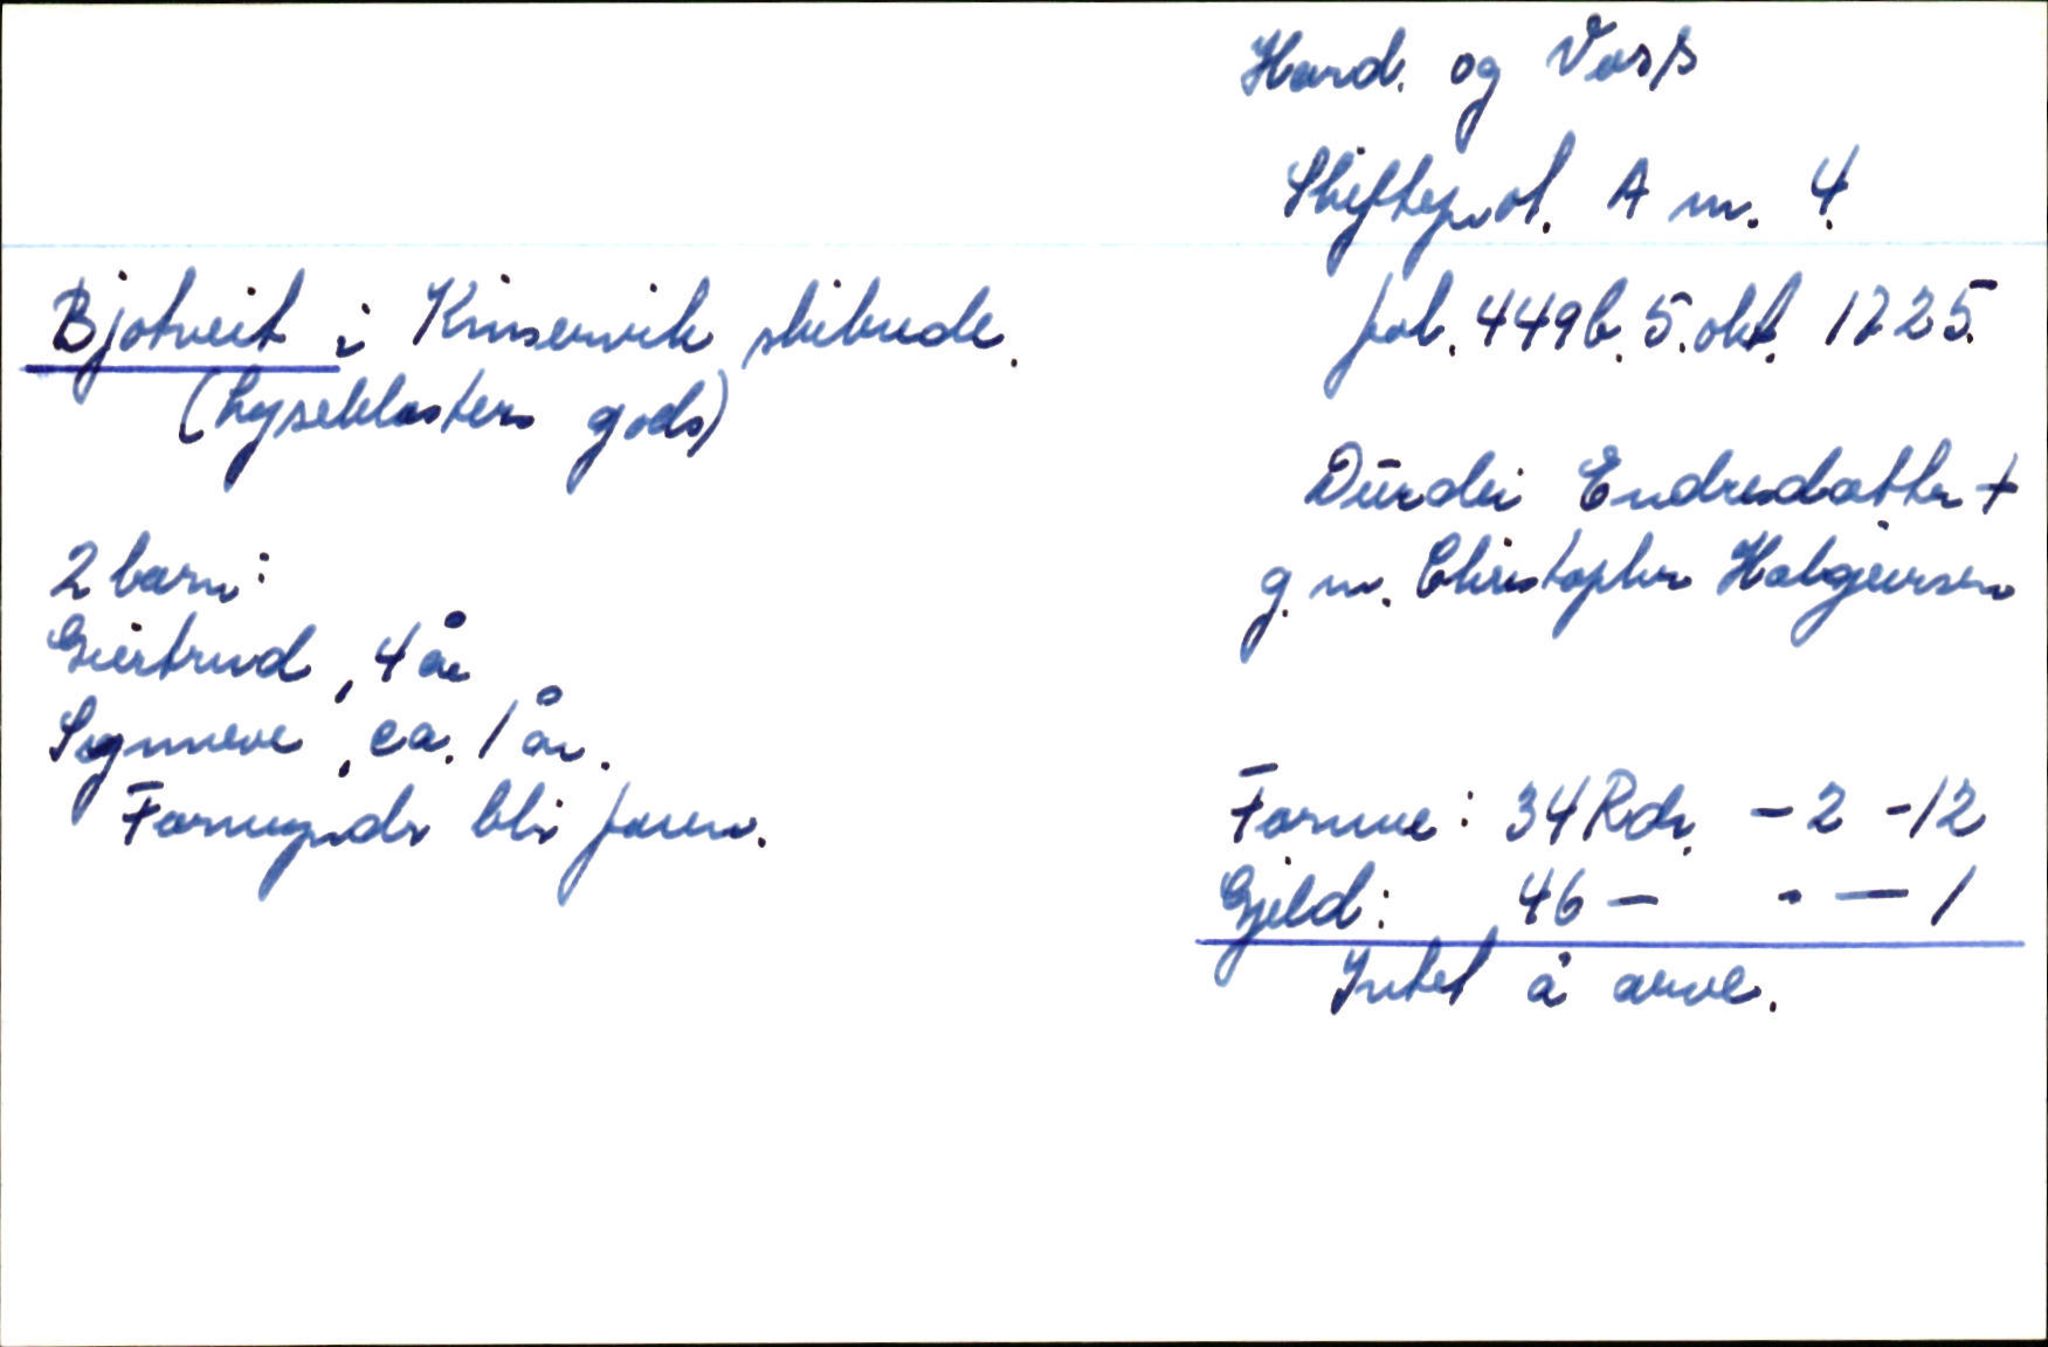 Hard. og Voss
Skifteprol. A nr. 4.
fol. 449b. 5. okt. 1725.
Bjotveit i Kinservik skibrude.
(Lyseklosters gods)
Dürdei Endresdatter +
g. m. Christopher Halgeirsen
2 barn:
Giertrud, 4 år
Sygnneve, ca. 1 år.
Formynder bli faren.
Formue: 34 Rdr. - 2 - 12
Gjeld: 46 - - - 1
Intet å arve.